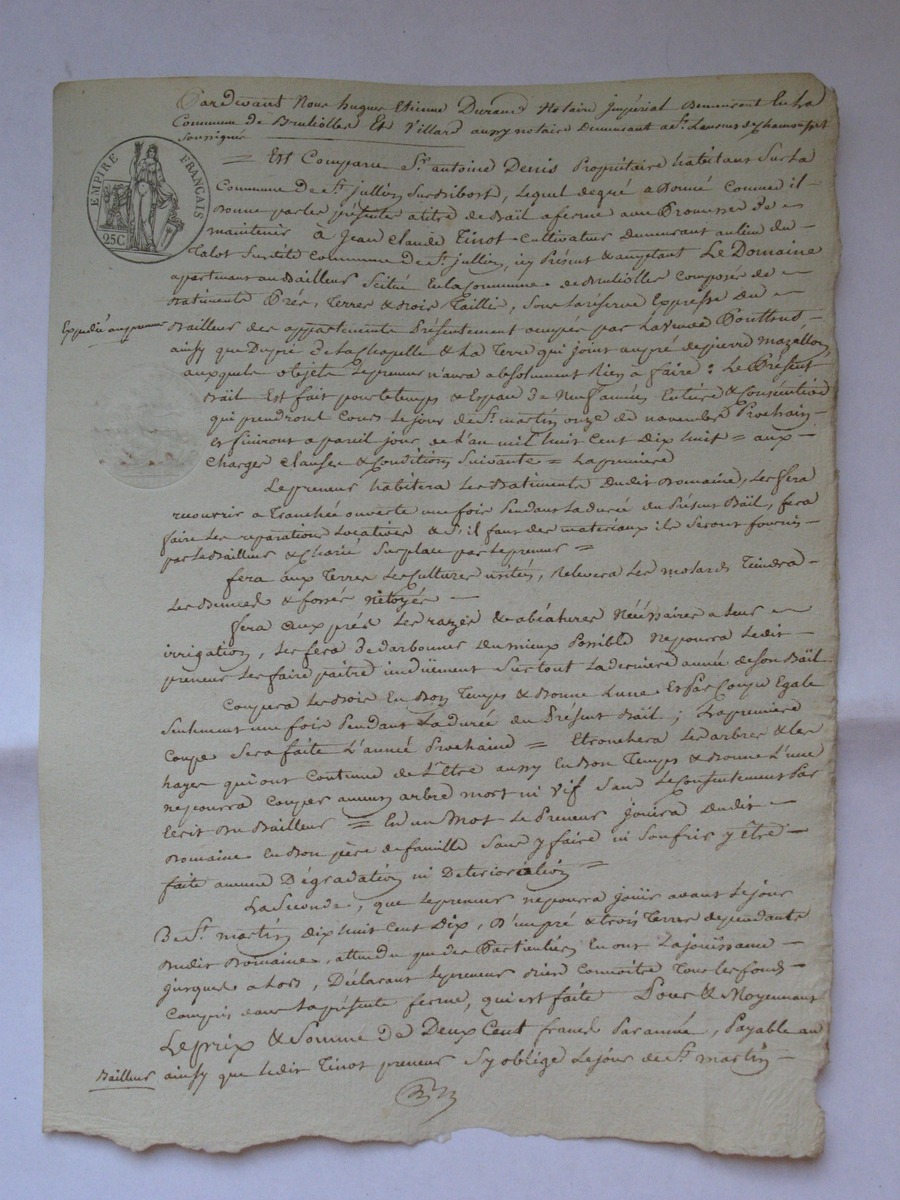 Pardevant Nous hugues Etienne Durand Notaire Impérial Demeurant En La
Commune de Brulliolles Et Villard aussy notaire Demeurant a St Laurens de Chamousset
Soussignés
EMPIRE FRANÇAIS
25C
= Est Comparu Sr antoine Denis Propriétaire habitant Sur La
Commune De St jullien Sur Bibost, Lequel de gré a Donné Comme il
Donne par les présente a titre de Bail a ferme avec Promesse de
maintenir à Jean Claude Tinot Cultivateur Demeurant au lieu du
Talot Susdite Commune De St jullien, icy Présent & acceptant Le Domaine
apartenant au Bailleur Scitué En La Commune de Brulliolles Composés de
Batiments Prés, Terres & Bois Taillis, Sous La réserve Expresse Du
Expédié au preneur
Bailleur des appartements Présentement occupés par La Veuve
ainsy que Du pré de La Chapelle & La Terre qui joint au pré de pierre Mazallon
auxquels objets Le preneur n'aura absolument Rien à faire : Le Présent
Bail Est fait pour Le temps & Espace de Neuf années Entière & Consécutive
qui prendront Cours Le jour de St martin onze de novembre Prochain
Et finiront a pareil jour de L'an mil huit Cent Dix huit = aux
Charges Clauses & Conditions Suivante = La premiere
Le preneur habitera Les Batiments Dudit Domaine, Les fera
recouvrir a Tranchée ouverte une fois Pendant La durée du Présent Bail, fera
faire Les réparations Locatives & S'il faut des materiaux ils Seront fournis
par Le Bailleur & Charié Sur place par Le preneur =
fera aux Terres Les Cultures usités, relevera Les Tiendra
Les & fossés Netoyés
fera aux prés Les razes & Nécéssaires a Leur
irrigation, Les fera de darbonner Du mieux Possible Ne poura Ledit
preneur Les faire paitre induëment Surtout La dernière année de Son Bail
Coupera Les Bois En Bon Temps & Bonne Lune Et Par Coupe Egale
Seulement une fois Pendant La Durée du Présent Bail ; La premiere
Coupe Sera faite L'année Prochaine = Etronchera Les arbres & les
hayes qui ont Coutume de L'Etre aussy En Bon Temps & Bonne L'une
ne poura Couper aucun arbre mort ni Vif Sans Le Consentement Par
Ecrit Du Bailleur = En un Mot Le Preneur jouira Dudit
Domaine En Bon père de famille Sans y faire ni Soufrir y être
faite aucune Dégradation ni Deterioration =
La Seconde, que Le preneur ne poura jouir avant Le jour
De St martin Dix huit Cent Dix, D'un pré & trois Terres dependants
Dudit Domaine, attendu que des Particuliers En ont La jouissance
jusques a Lors, Déclarant Le preneur Bien Connoitre Tous Les fonds
Compris dans La présente ferme, qui est faite Pour & Moyennant
Le prix & Somme De Deux Cent francs Par année, Payable au
Bailleur ainsy que Ledit Tinot preneur S'y oblige Le jour de St martin